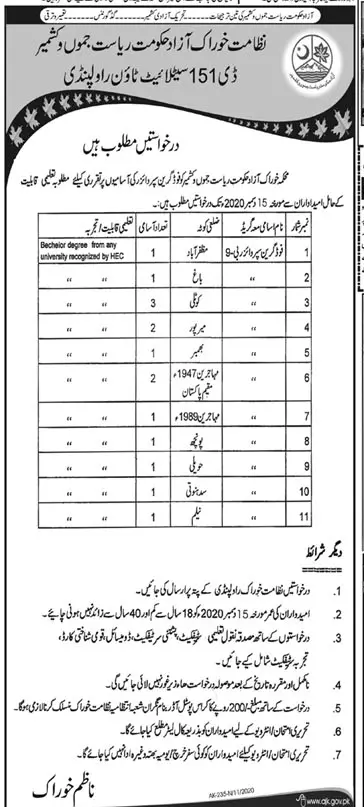 آزاد حکومت ریاست جموں و کشمیر کی تین ترجیحات ــــ تحریک آزادی کشمیر ــــ گڈ گورننس ــــ تعمیر و ترقی
نظامت خوراک آزاد حکومت ریاست جموں و کشمیر
ڈی 151 سیٹلائیٹ ٹاؤن راولپنڈی
درخواستیں مطلوب ہیں
محکمہ خوراک آزاد حکومت ریاست جموں و کشمیر کو فوڈ گرین سپروائزر کی آسامیوں پر تقرری کیلئے مطلوبہ تعلیمی قابلیت
کے حامل امیدواران سے مورخہ 15 دسمبر 2020 تک درخواستیں مطلوب ہیں:
نمبر شمار نام اسامی معہ گریڈ ضلعی کوٹہ تعداد آسامی تعلیمی قابلیت / تجربہ
1 فوڈ گرین سپر وائزر بی-9 مظفر آباد 1 Becheior degree from any university recognized by HEC
2 ,, باغ 1 ,, ,,
3 ,, کوٹلی 3 ,, ,,
4 ,, میرپور 2 ,, ,,
5 ,, بھمبر 1 ,, ,,
6 ,, مہاجرین 1947ء مقیم پاکستان 2 ,, ,,
7 ,, مہاجرین 1989ء 1 ,, ,,
8 ,, پونچھ 1 ,, ,,
9 ,, حویلی 1 ,, ,,
10 ,, سدہنوتی 1 ,, ,,
11 ,, نیلم 1 ,, ,,
دیگر شرائط
1. درخواستیں نظامت خوراک راولپنڈی کے پتہ پر ارسال کی جائیں۔
2. امیدواران کی عمر مورخہ 15 دسمبر 2020 کو 18 سال سے کم اور 40 سال سے زائد نہیں ہونی چاہیے۔
3. درخواستوں کے ساتھ مصدقہ نقول تعلیمی سرٹیفکیٹ، پشتنی سرٹیفکیٹ، ڈومیسائل، قومی شناختی کارڈ،
تجربہ سرٹیفکیٹ شامل کیے جائیں۔
4. نامکمل اور مقررہ تاریخ کے بعد موصولہ درخواست ھاء زیر غور نہیں لائی جائیں گی۔
5. درخواست کے ساتھ مبلغ -/200 روپے کا کراس پوسٹل آڈر بنام نگران شعبہ انتظامیہ نظامت خوراک منسلک کرنا لازمی ہوگا۔
6. تحریری امتحان / انٹرویو کے لیے امیدواران کو بذریعہ کال لیٹر مطلع کیا جائے گا۔
7. تحریری امتحان / انٹرویو کیلئے امیدواران کو کوئی سفر خرچ / یومیہ بھتہ وغیرہ ادا نہیں کیا جائے گا۔
ناظم خوراک
AK-235-N/11/2020
www.ajk.gov.pk